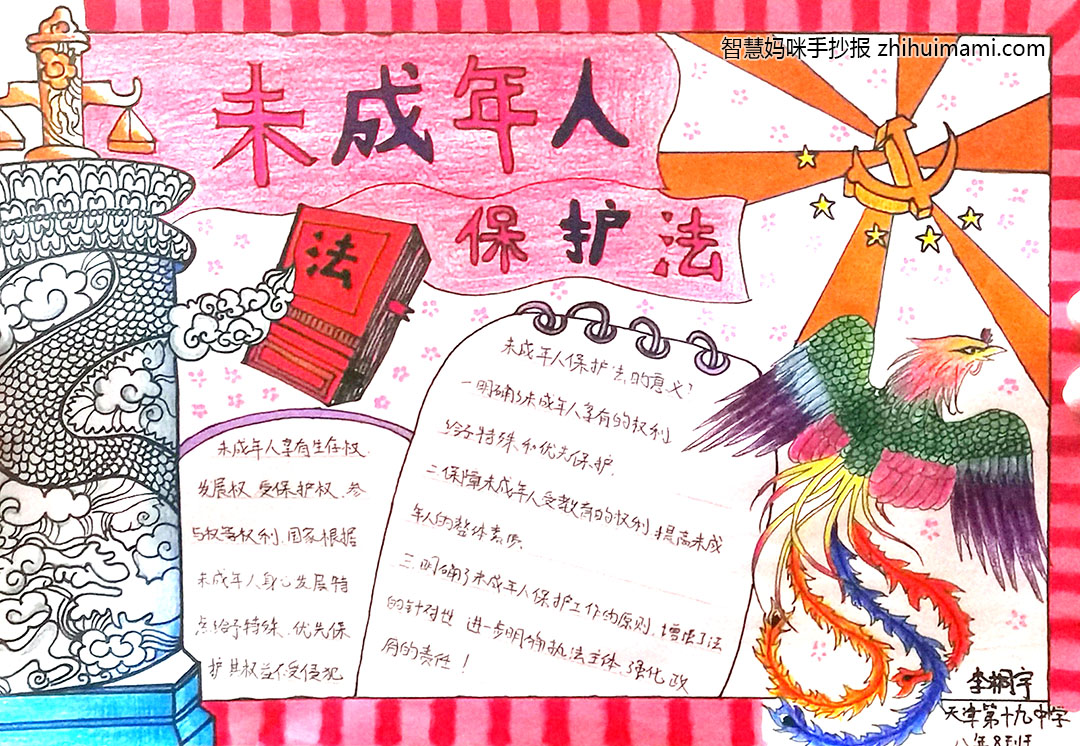 智慧妈咪手抄报 zhihuimami.com
未成年人
保护法
法
未成年人保护法的意义?
一明确了未成年人享有的权利
给予特殊和优先保护.
二保障未成年人受教育的权利,提高未成
年人的整体素质
三明确了未成年人保护工作的原则,增强了法
的针对性 进一步明确执法主体,强化政
府的责任!
未成年人享有生存权.
发展权 受保护权.参
与权等权利.国家根据
未成年人身心发展特
点给予特殊、优先保
护其权益不受侵犯
李桐宇
天津第十九中学
八年